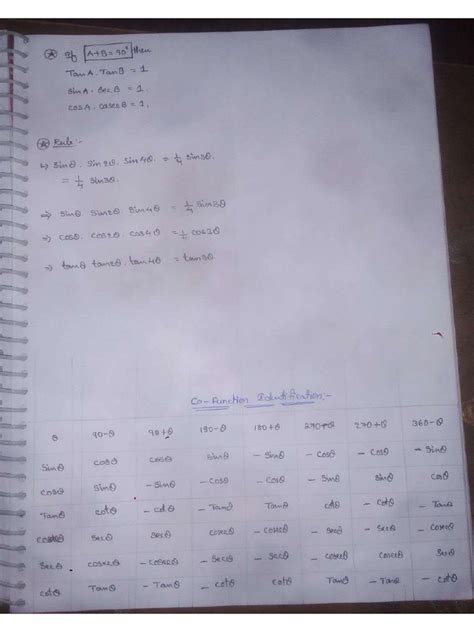 If A+B=90° then
TanA . TanB = 1
SinA . SecB = 1.
CosA . CosecB = 1.
Rule:-
↳ Sinθ . Sin2θ . Sin4θ = 1/4 Sin3θ
= 1/4 Sin3θ.
⇒ Sinθ Sin2θ . Sin4θ = 1/4 Sin3θ
⇒ Cosθ . Cos2θ Cos4θ =
⇒ tanθ tan2θ . tan4θ = tan3θ
Co-Function Identification:-
θ 90-θ 90+θ 180-θ 180+θ 270+θ 360-θ
Sinθ Cosθ Cosθ Sinθ - Sinθ - Cosθ - Cosθ - Sinθ
Cosθ Sinθ - Sinθ - Cosθ - Cosθ - Sinθ Sinθ Cosθ
Tanθ Cotθ - Cotθ - Tanθ Tanθ Cotθ - Cotθ - Tanθ
Secθ Secθ Cosecθ - Cosecθ - Secθ - Secθ - Cosecθ
Secθ Cosecθ - Cosecθ - Secθ - Secθ - Cosecθ Cosecθ Secθ
Cotθ Tanθ - Tanθ - Cotθ Cotθ Tanθ - Tanθ - Cotθ